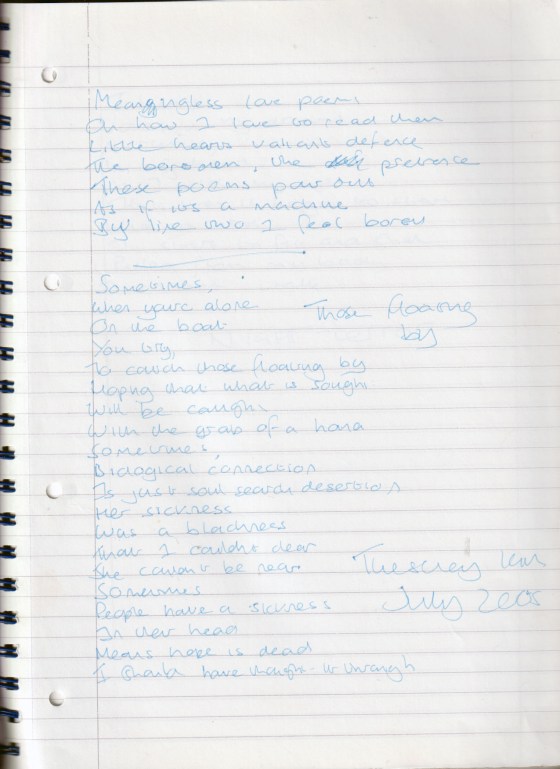 Meaningless love poems
Oh how I love to read them
Little hearts valiants defence
The boredom, the pretence
These poems pour out
As if its a machine
By line two I feel bored
Sometimes,
when your alone
On the boat
You try,
To catch those floating by
Hoping that what is sought
Will be caught
With the grab of a hand
Sometimes,
Biological connection
Is just soul search desertion
Her sickness
Was a blackness
That I couldn't clear
She couldn't be near
Sometimes
People have a sickness
In their head
Means hope is dead
I should have thought it through
Those floating
by
July 2005